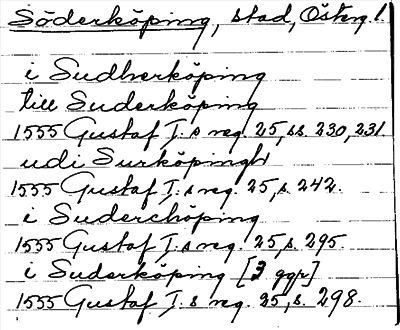 Söderköping, stad, Österg l.
i Sudherköping
till Suderköping
1555 Gustaf I:s reg. 25, ss. 230, 231.
udi Surköpingh
1555 Gustaf I:s reg. 25, s. 242.
i Suderchöping
1555 Gustaf I:s reg. 25, s. 295.
i Suderköping [3 ggr]
1555 Gustaf I:s reg. 25, s. 298.